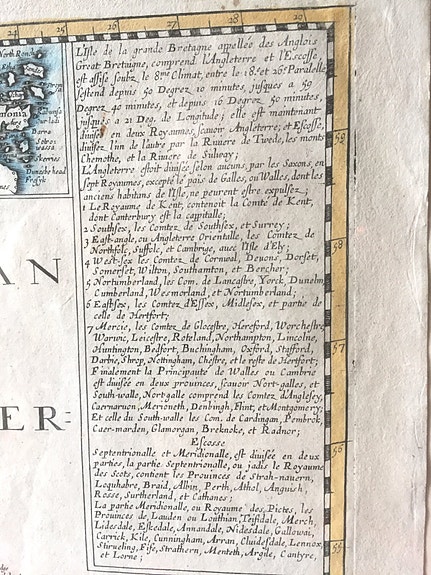 24 25 26 27 28 29
North Ronch
L'Isle de la grande Bretagne appellée des Anglois
Great Bretaigne, comprend l'Angleterre et l'Escosse,
est assise soubz le 8me Climat, entre le 18e. et 26e Paralelle
s'estend depuis 50 Degrez 10 minutes, jusques a 59
Degrez 40 minutes, et depuis 16 Degrez 50 minutes,
jusques a 21 Deg. de Longitude; elle est maintenant
divisée en deux Royaumes, scavoir Angleterre; et Escosse,
divisez l'un de l'autre par la Riviere de Twede, les monts
Chemothe, et la Riviere de Sulway;
L'Angleterre estoit divisée selon aucuns, par les Saxons, en
sept Royaumes, excepté le pais de Galles, ou Walles, dont les
anciens habitans de l'Isle, ne peurent estre expulsez;
1 Le Royaume de Kent, contenoit la Comté de Kent,
dont Canterbury est la capitalle;
2 Southsex, les Comtez de Southsex, et Surrey;
3 East-angle, ou Angleterre Orientalle, les Comtez de
Northfolc, Suffolc, et Cambryge, avec l'Isle d'Ely;
4 West-sex les Comtez de Cornwal, Devons, Dorset,
Somerset, Wilton, Southamton, et Bercher;
5 Northumberland, les Com. de Lancastre, Yorck, Dunelm,
Cumberland, Wesmorland, et Nortumberland;
6 Eastsex, les Comtez d'Essex, Midlesex, et partie de
celle de Hertfort;
7 Mercie, les Comtez de Glocestre, Hereford, Worchestre,
Warwic, Leicestre, Roteland, Northampton, Lincolne,
Huntington, Bedfort, Buchingham, Oxford, Stafford,
Darbie, Shrop, Nottingham, Chestre, et le reste de Hertfort;
Finalement la Principauté de Walles ou Cambrie
est divisée en deux provinces, scavoir Nort-galles, et
South-walle, Nortgalle comprend les Comtez d'Anglesey,
Caernarvon, Merioneth, Denbigh, Flint, et Montgomery;
Et celle du South-walle les Com. de Cardingan, Pembrok,
Caer-marden, Glamorgan, Breknoke, et Radnor;
Escosse
Septentrionalle et Meridionalle, est divisée en deux
parties, la partie Septentrionalle, ou jadis le Royaume
des Scots, contient les Provinces de Strah-nauern,
Loquhabre, Braid, Albin, Perth, Athol, Anguish,
Rosse, Surtherland, et Cathanes;
La partie Meridionalle, ou Royaume des Pictes, les
Provinces de Lauden ou Louthian, Teifidale, Merch,
Lidesdale, Eskedale, Annandale, Nidesdale, Gallowai,
Carrick, Kile, Cunningham, Arran, Cluidesdale, Lennox
Stirueling, Fife, Strathern, Menteth, Argile, Cantyre,
et Lorne;
Skerries
AN
ER:
59
58
57
56
55